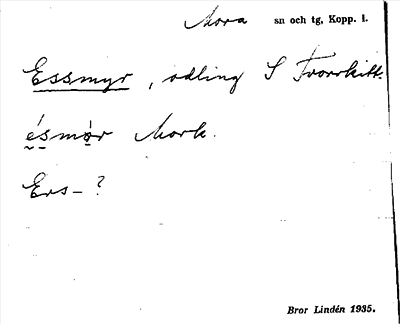 Mora sn och tg, Kopp. l.
Essmyr, odling S
ésmòr Mork.
Ers- ?
Bror Lindén 1935.